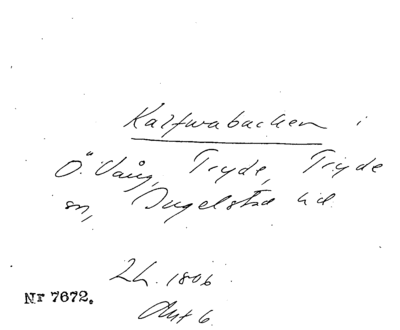 Kalfwabacken i
Ö. Vång, Tryde, Tryde
sn, Ingelstad hd.
Lh. 1806
Akt 6
Nr 7672.